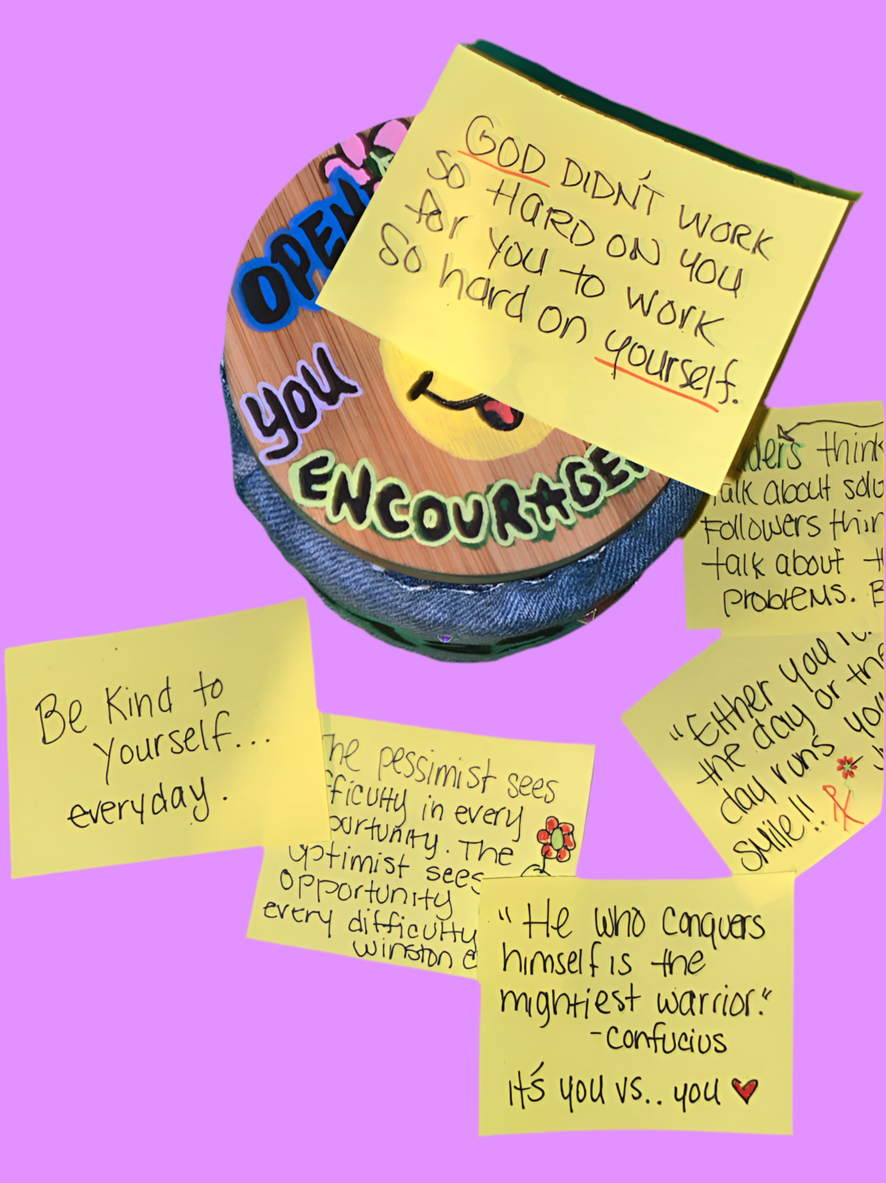 GOD DIDN'T WORK
SO HARD ON YOU
for you to work
So hard on yourself.
OPEN
you
ENCOURAGE
think
talk about
Followers
talk about
problems.
"Either you
the day or the
day runs
smile!!
Be Kind to
yourself...
everyday.
The pessimist sees
in every
The
optimist sees
opportunity
every difficulty
winston
"He who conquers
himself is the
mightiest warrior."
-Confucius
It's you vs.. you